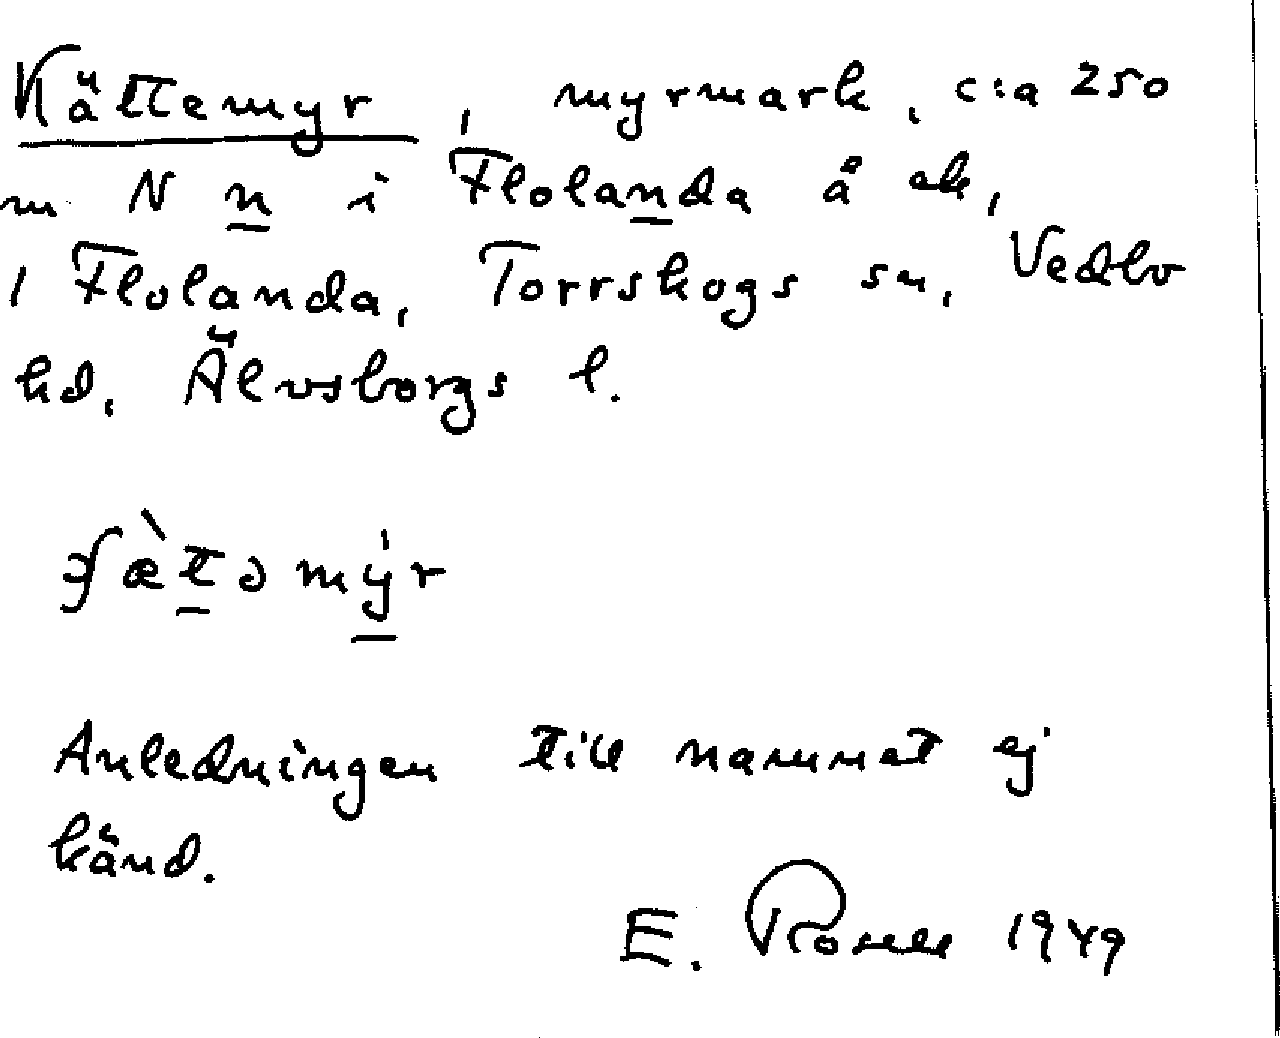 Kättemyr, myrmark, c:a 250
m N n i Flolanda å ek,
1 Flolanda, Torrskogs sn, Vedbo
hd, Älvsborgs l.
ʃæ̀təmýr
Anledningen till namnet ej
känd.
E. Rosell 1949